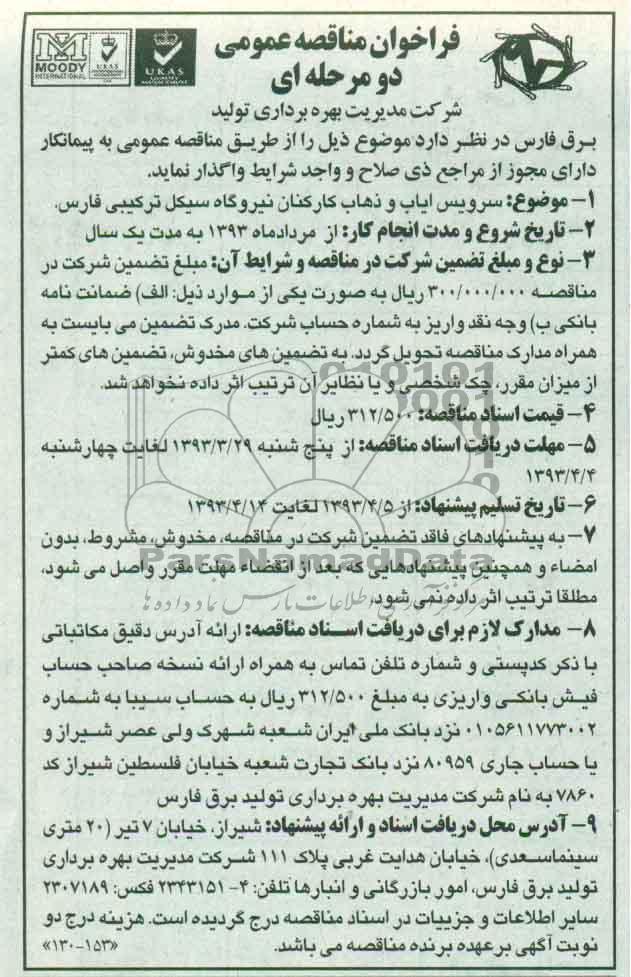 فراخوان مناقصه عمومی
دو مرحله ای
MOODY
INTERNATIONAL
UKAS
UKAS
QUALITY
MANAGEMENT
شرکت مدیریت بهره برداری تولید
برق فارس در نظر دارد موضوع ذیل را از طریق مناقصه عمومی به پیمانکار
دارای مجوز از مراجع ذی صلاح و واجد شرایط واگذار نماید.
۱- موضوع: سرویس ایاب و ذهاب کارکنان نیروگاه سیکل ترکیبی فارس.
۲- تاریخ شروع و مدت انجام کار: از مردادماه ۱۳۹۳ به مدت یک سال
۳- نوع و مبلغ تضمین شرکت در مناقصه و شرایط آن: مبلغ تضمین شرکت در
مناقصه ۳۰۰/۰۰۰/۰۰۰ ریال به صورت یکی از موارد ذیل: الف) ضمانت نامه
بانکی ب) وجه نقد واریز به شماره حساب شرکت. مدرک تضمین می بایست به
همراه مدارک مناقصه تحویل گردد. به تضمین های مخدوش، تضمین های کمتر
از میزان مقرر، چک شخصی و یا نظایر آن ترتیب اثر داده نخواهد شد.
۴- قیمت اسناد مناقصه: ۳۱۲/۵۰۰ ریال
۵- مهلت دریافت اسناد مناقصه: از پنج شنبه ۱۳۹۳/۳/۲۹ لغایت چهارشنبه
۱۳۹۳/۴/۴
۶- تاریخ تسلیم پیشنهاد: از ۱۳۹۳/۴/۵ لغایت ۱۳۹۳/۴/۱۴
۷- به پیشنهادهای فاقد تضمین شرکت در مناقصه، مخدوش، مشروط، بدون
امضاء و همچنین پیشنهادهایی که بعد از انقضاء مهلت مقرر واصل می شود،
مطلقا ترتیب اثر داده نمی شود.
ParsNamadData
۸- مدارک لازم برای دریافت اسناد مناقصه: ارائه آدرس دقیق مکاتباتی
با ذکر کدپستی و شماره تلفن تماس به همراه ارائه نسخه صاحب حساب
فیش بانکی واریزی به مبلغ ۳۱۲/۵۰۰ ریال به حساب سیبا به شماره
۰۱۰۵۶۱۱۷۷۳۰۰۲ نزد بانک ملی ایران شعبه شهرک ولی عصر شیراز و
یا حساب جاری ۸۰۹۵۹ نزد بانک تجارت شعبه خیابان فلسطین شیراز کد
۷۸۶۰ به نام شرکت مدیریت بهره برداری تولید برق فارس
۹- آدرس محل دریافت اسناد و ارائه پیشنهاد: شیراز، خیابان ۷ تیر (۲۰ متری
سینماسعدی)، خیابان هدایت غربی پلاک ۱۱۱ شرکت مدیریت بهره برداری
تولید برق فارس، امور بازرگانی و انبارها تلفن: ۴-۲۳۴۳۱۵۱ فکس: ۲۳۰۷۱۸۹
سایر اطلاعات و جزییات در اسناد مناقصه درج گردیده است. هزینه درج دو
نوبت آگهی بر عهده برنده مناقصه می باشد. «۱۳۰-۱۵۳»